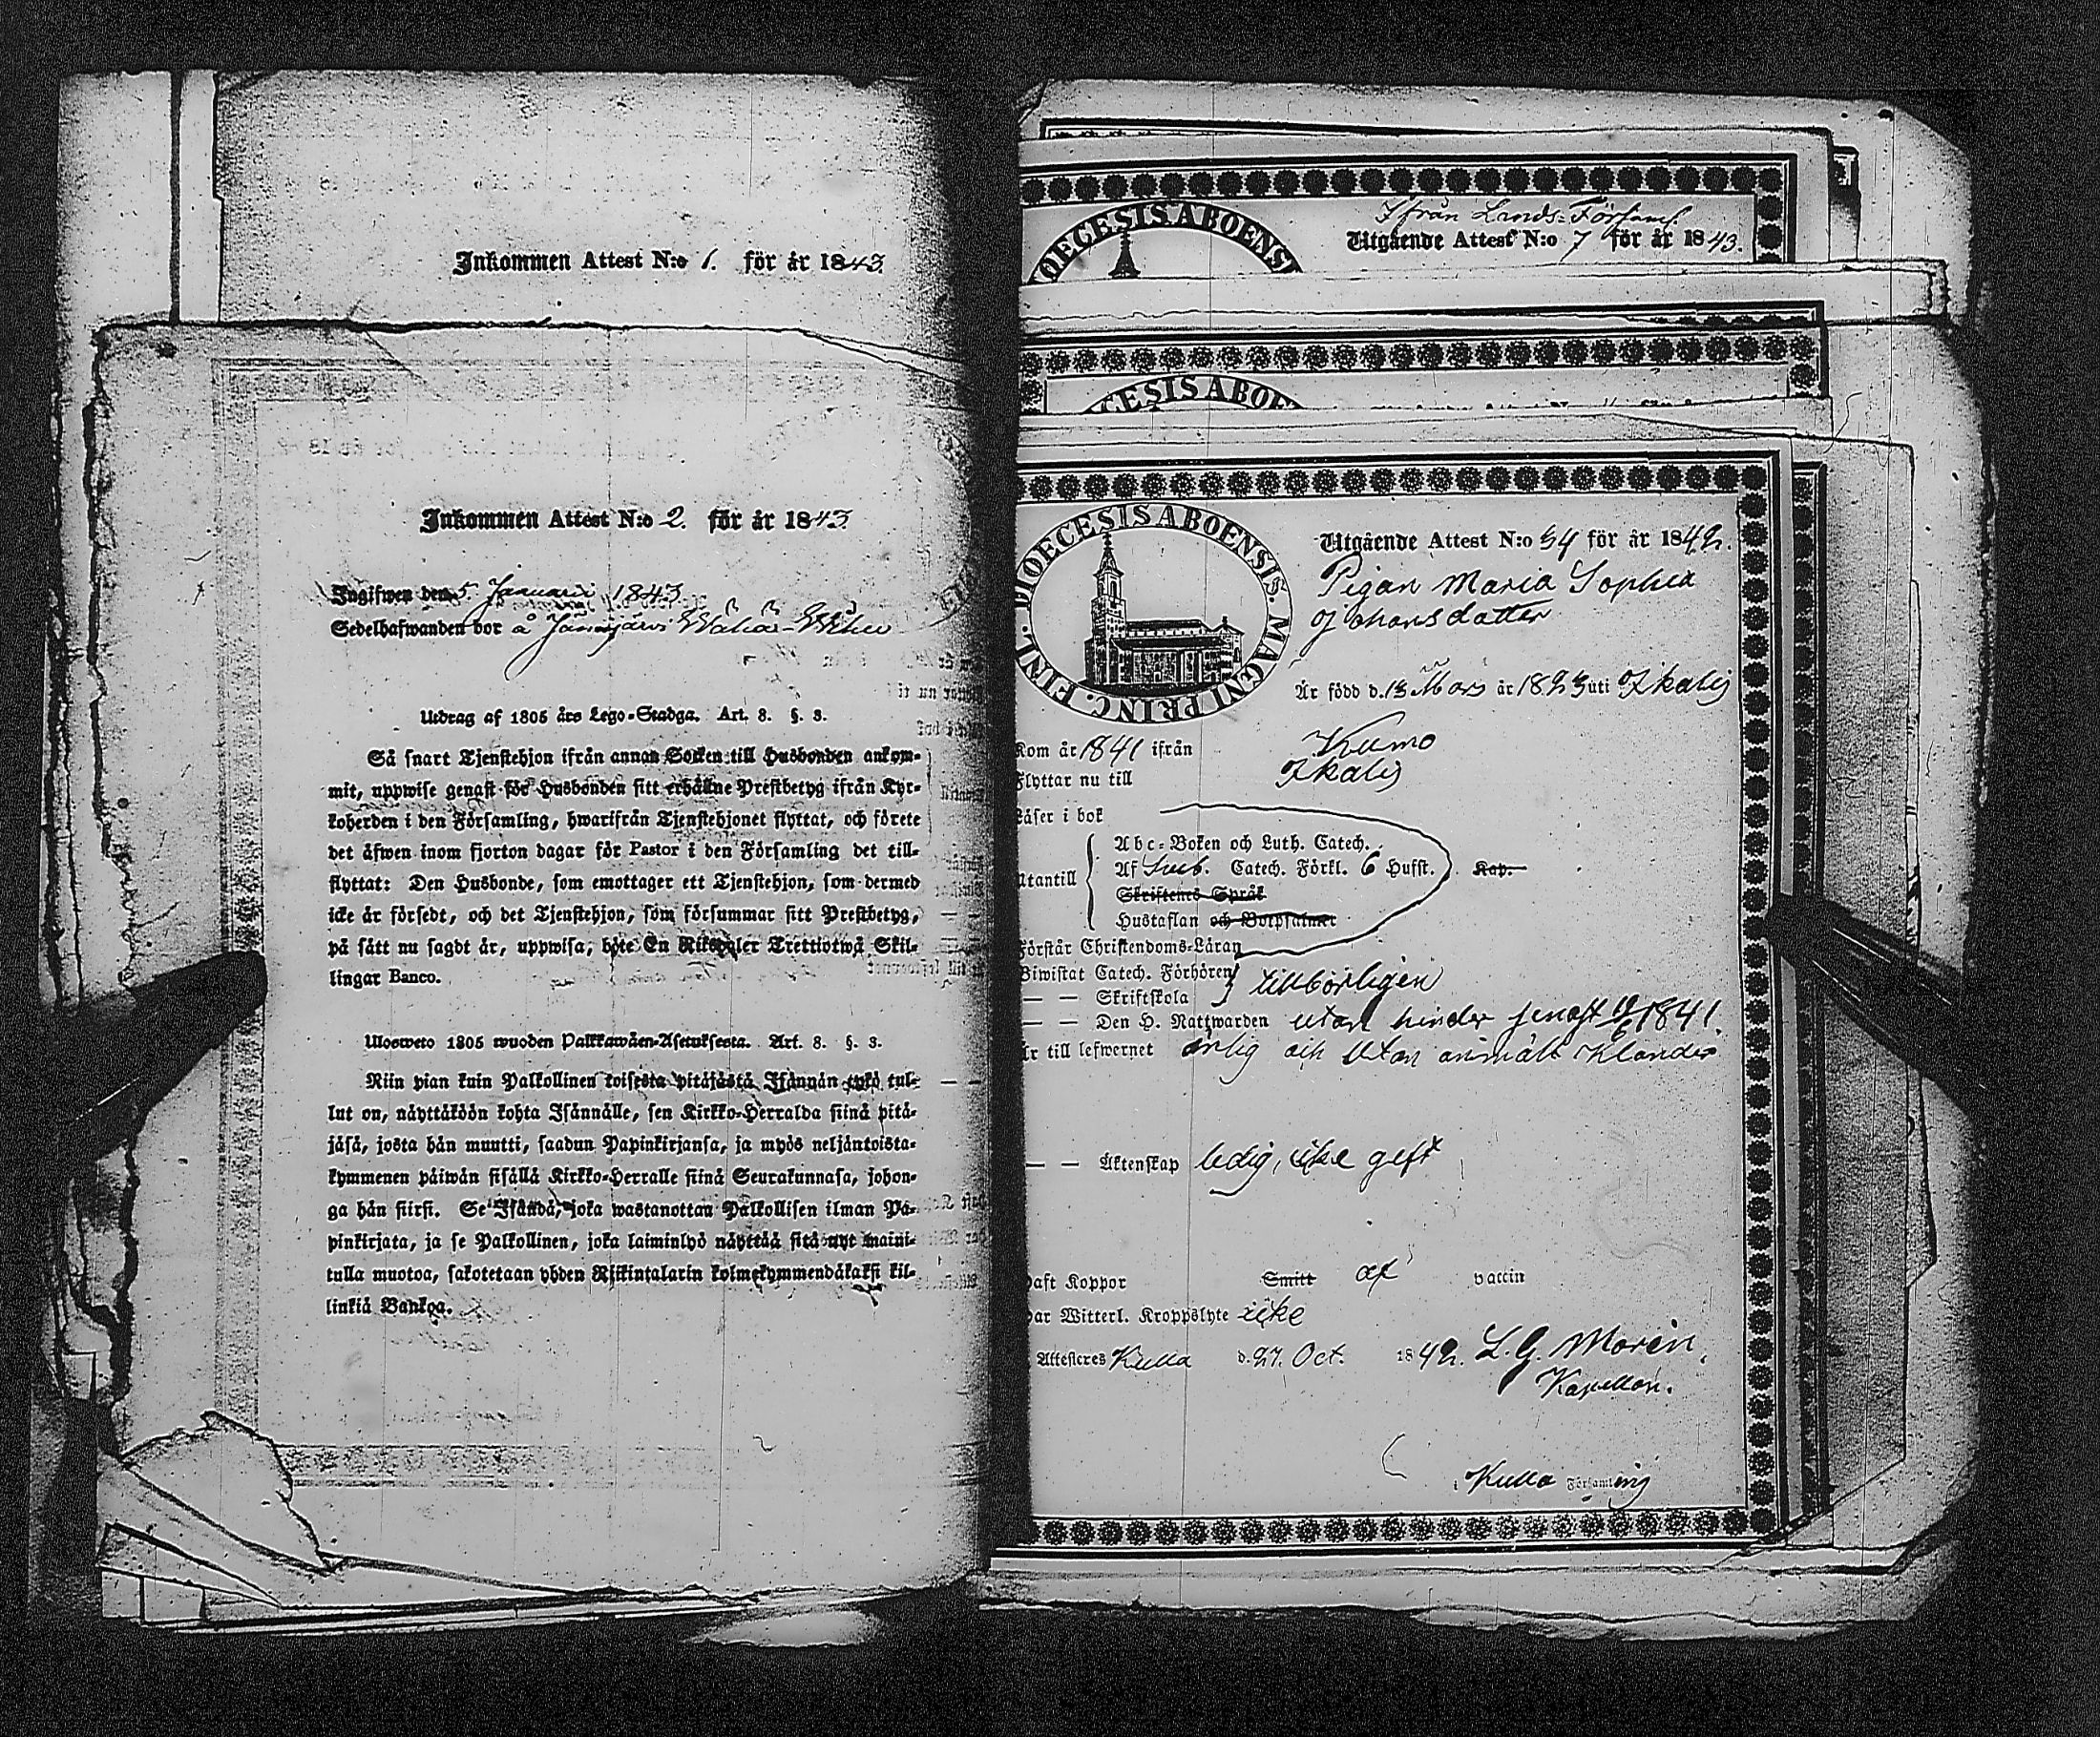 Inkommen Attest N:o 1. för år 1843.
Inkommen Attest N:o 2. för år 1843.
Ingifwen den 5. Januari 1843
Sedelhafwanden bor å Jämijärvi
Utdrag af 1805 års Lego-Stadga. Art. 8. §. 3.
Så snart Tjenstehjon ifrån annan Socken till Husbonden ankom-
mit, uppwise genast för Husbonden sitt erhållne Prestbetyg ifrån Kyr-
koherden i den Församling, hwarifrån Tjenstehjonet flyttat, och förete
det äfwen inom fjorton dagar för Pastor i den Församling det till-
flyttat: Den Husbonde, som emottager ett Tjenstehjon, som dermed
icke är försedt, och det Tjenstehjon, som försummar sitt Prestbetyg,
på sätt nu sagdt är, uppwisa, böte En Riksdaler Trettiotwå Skil-
lingar Banco.
Ulosweto 1805 wuoden Palkkawäen-Asetuksesta. Art. 8. §. 3.
Niin pian kuin Palkollinen toisesta pitäjästä Isännän tykö tul-
lut on, näyttäköön kohta Isännälle, sen Kirkko-Herralda siinä pitä-
jäsä, josta hän muutti, saadun Papinkirjansa, ja myös neljäntoista-
kymmenen päiwän sisällä Kirkko-Herralle siinä Seurakunnasa, johon-
ga hän siirsi. Se Isändä, joka wastanottaa Palkollisen ilman Pa-
pinkirjata, ja se Palkollinen, joka laiminlyö näyttää sitä nyt maini-
tulla muotoa, sakotetaan yhden Riikintalarin kolmekymmendäkaksi kil-
linkiä Bankoa.
DIOECESIS ABOENSI
Ifrån Lands-Församl.
Utgående Attest N:o 7 för år 1843.
CESIS ABOE
DIOECESIS ABOENSIS. MAGNI PRINC. FINL.
Utgående Attest N:o 54 för år 1842.
Pigan Maria Sophia
Johansdotter
Är född d. 13 Mars år 1823 uti Ikalis
Kom år 1841 ifrån Kumo
Flyttar nu till Ikalis
Läser i bok
Abc-Boken och Luth. Catech.
Utantill Af Sueb. Catech. Förkl. 6 Hufst. Kap.
Skriftenes Språk
Hustaflan och Botpsalmer
Förstår Christendoms-Läran
Biwistat Catech. Förhören
— — Skriftskola tillbörligen
— — Den H. Nattwarden utan hinder senast 19/6 1841.
Är till lefwernet ärlig och utan anmält klander
— — Äktenskap ledig, icke gift
Haft Koppor Smitt af vaccin
Har Witterl. Kroppslyte icke
Attesteres Kulla d. 27. Oct. 1842. L. G. Morén,
Kapellan.
i Kulla Församling